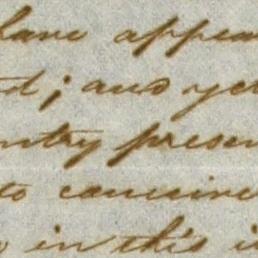 have appea
d; and yet
ntry presen
to convince
in this i